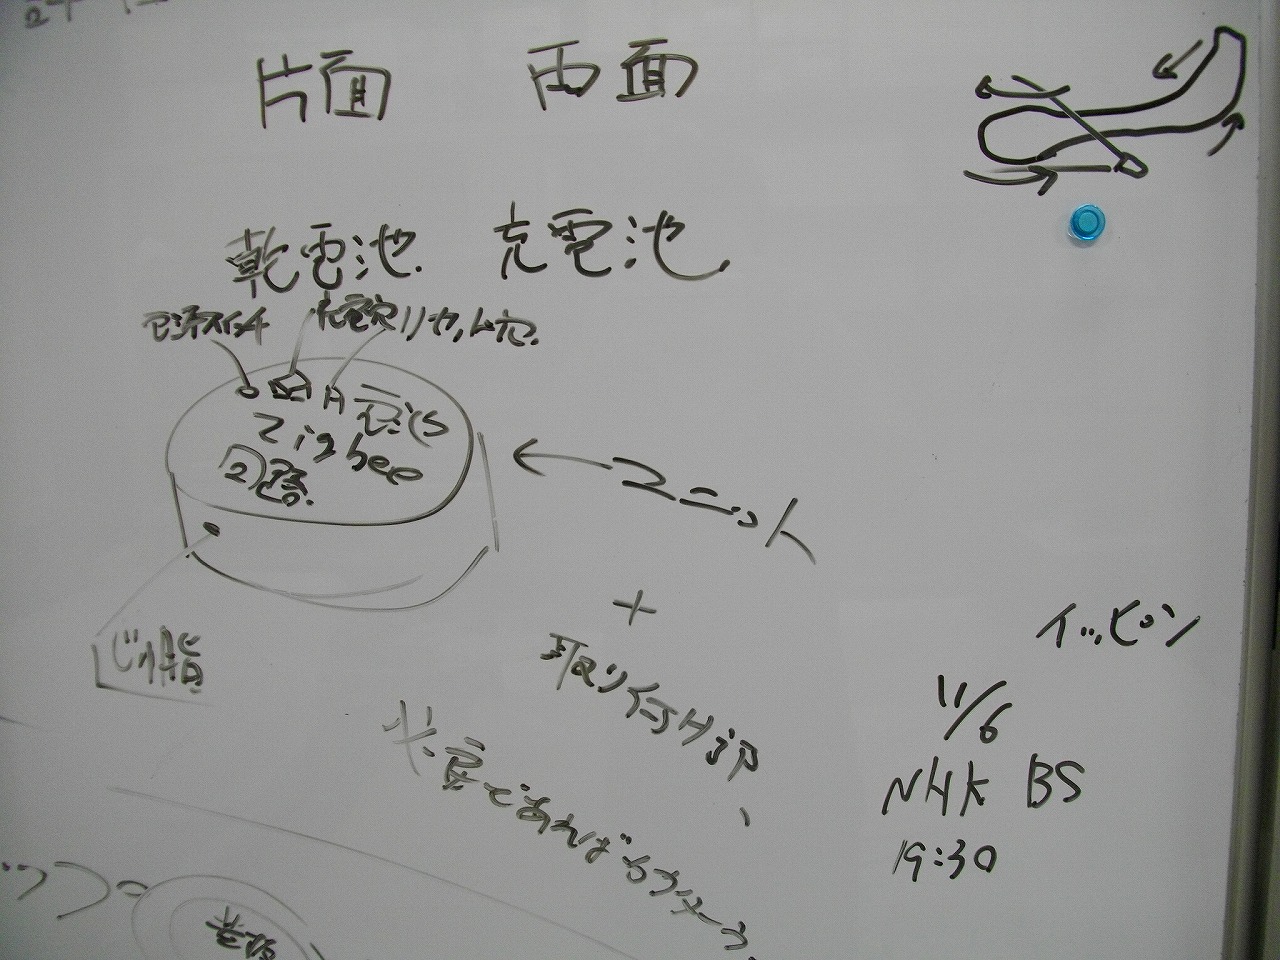 片面 両面
乾電池 充電池
電源スイッチ 充電穴 リセット穴
電池
Zigbee
回路
ユニット
じゅ脂
+
取り付け部
必要であれば
イッピン
11/6
NHK BS
19:30